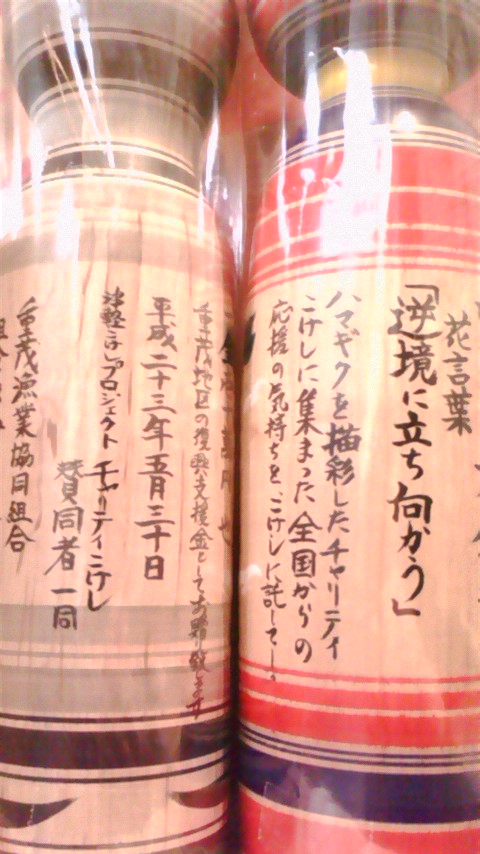 花言葉
「逆境に立ち向かう」
ハマギクを描彩したチャリティ
こけしに集まった全国からの
応援の気持ちを、こけしに託して…。
重茂地区の復興支援金としてお贈り致します
平成二十三年五月三十日
津軽こけしプロジェクト
チャリティこけし
賛同者一同
重茂漁業協同組合